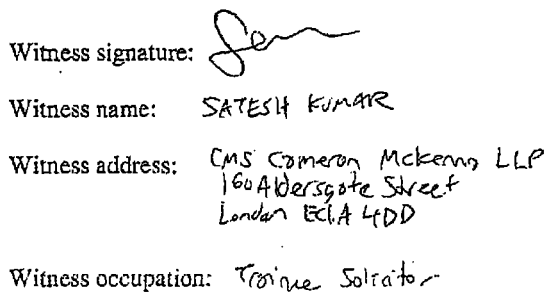 Witness signature:
Witness name: SATESH KUMAR
Witness address: CMS Cameron McKenna LLP
160 Aldersgate Street
London EC1A 4DD
Witness occupation: Trainee Solicitor